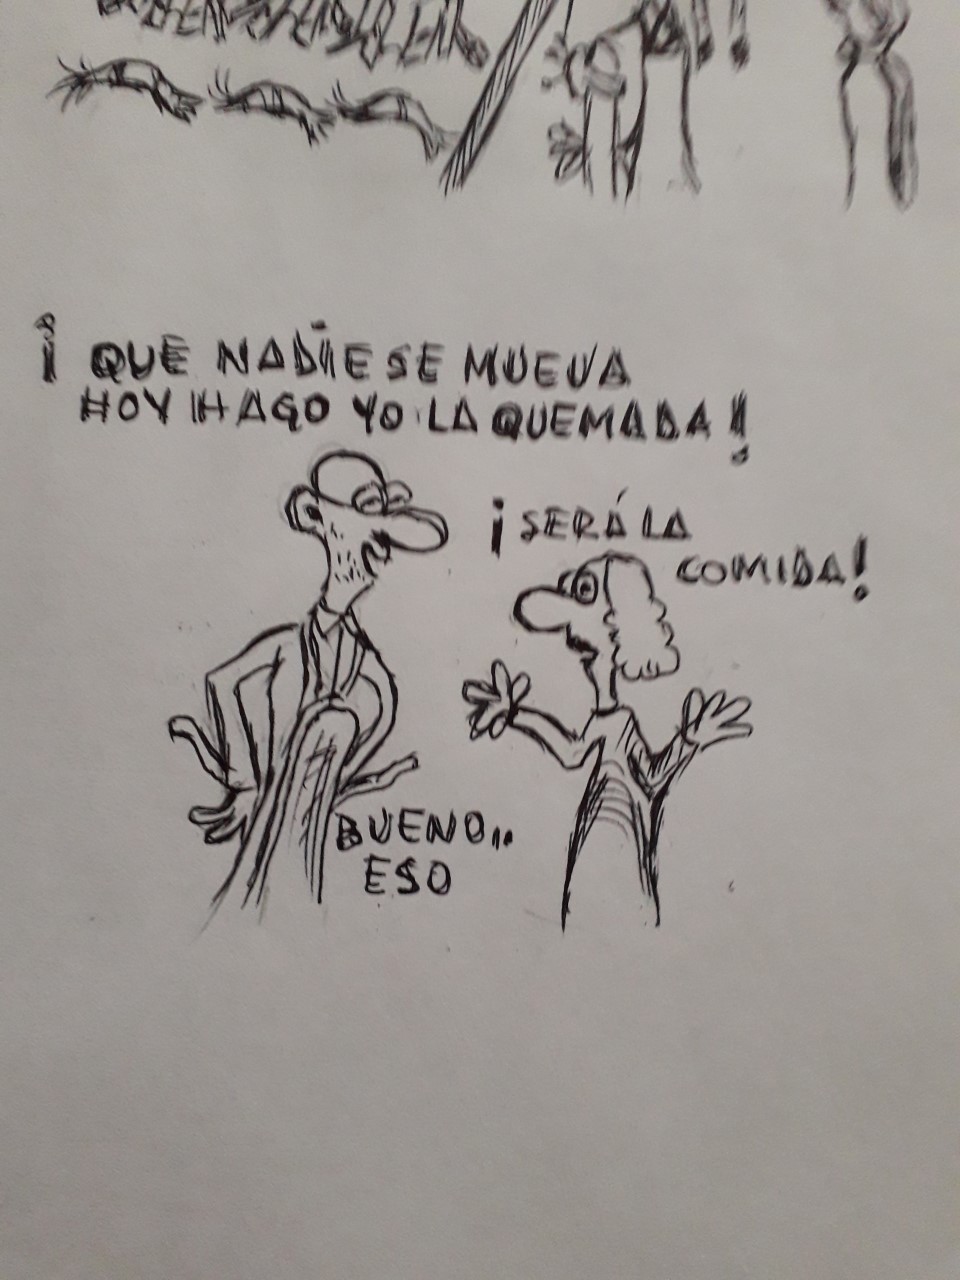 ¡QUE NADIE SE MUEVA
HOY HAGO YO LA QUEMADA!
¡SERÁ LA
COMIDA!
BUENO..
ESO